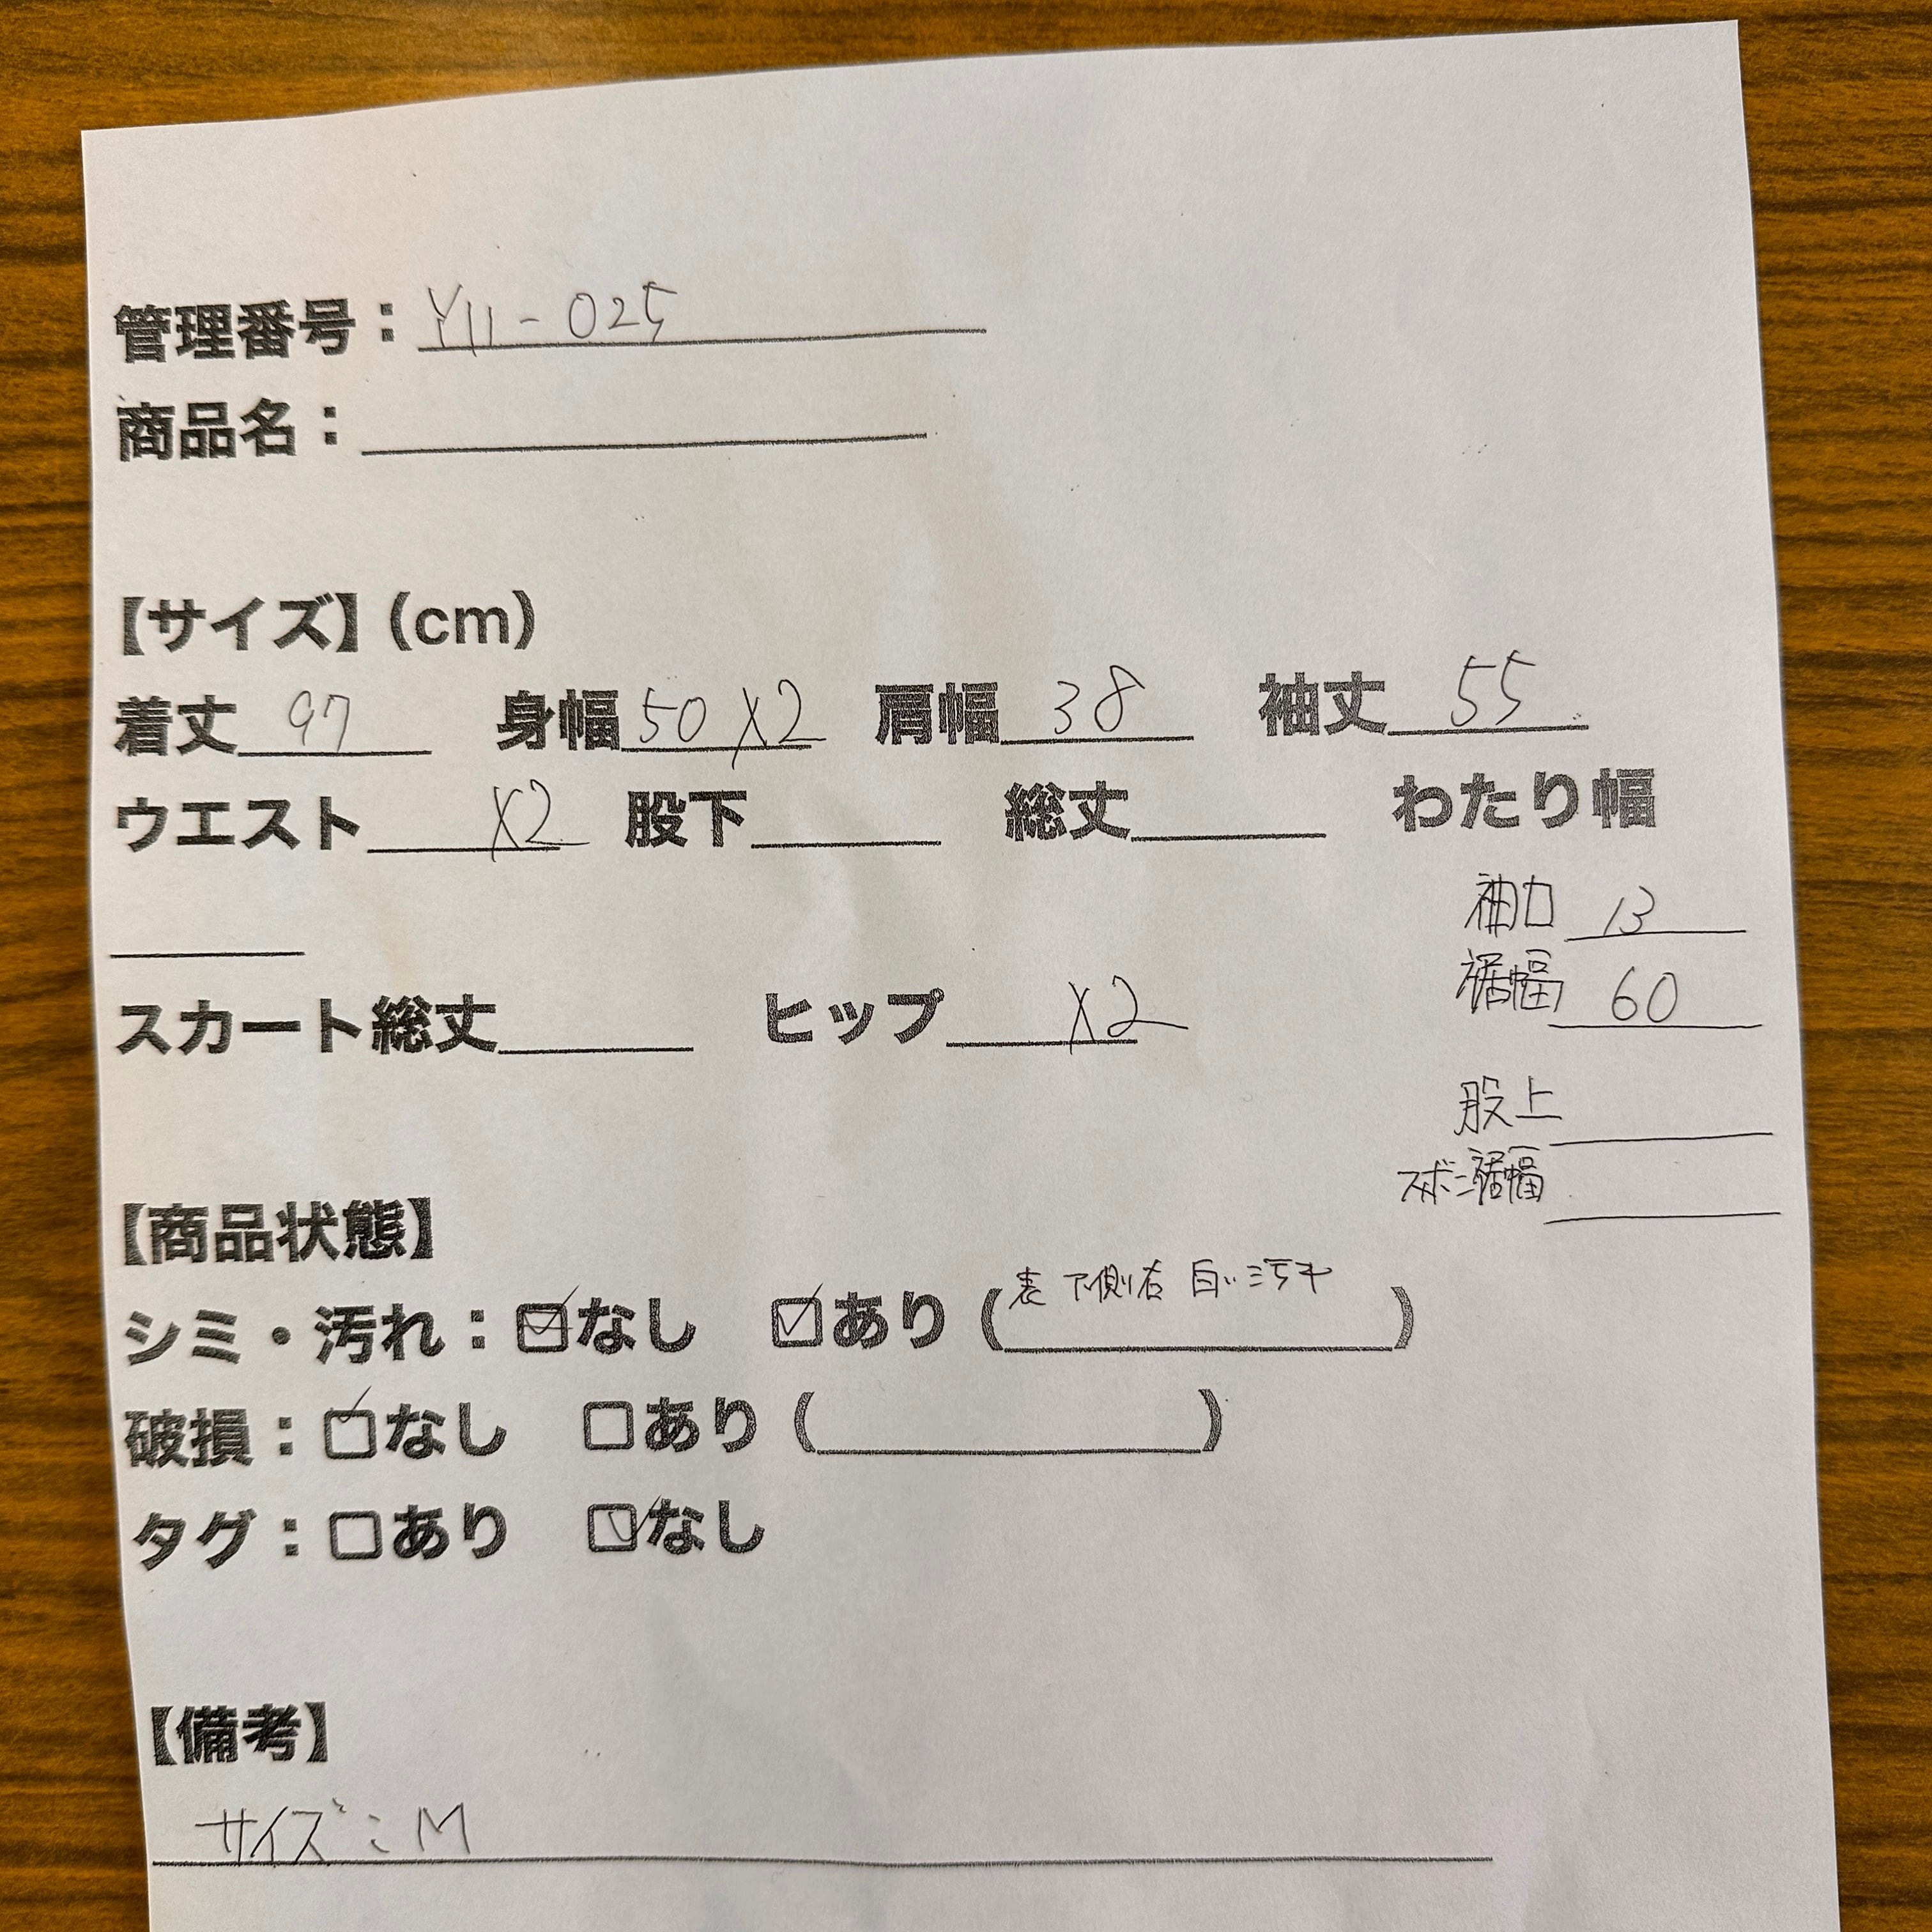 管理番号：Y11-025
商品名：
【サイズ】(cm)
着丈 97 身幅 50 X2 肩幅 38 袖丈 55
ウエスト X2 股下 総丈 わたり幅
袖口 13
裾幅 60
スカート総丈 ヒップ X2
股上
ズボン裾幅
【商品状態】
シミ・汚れ：☑なし ☑あり (表 下側右 白い汚れ)
破損：☑なし □あり ( )
タグ：□あり ☑なし
【備考】
サイズ：M